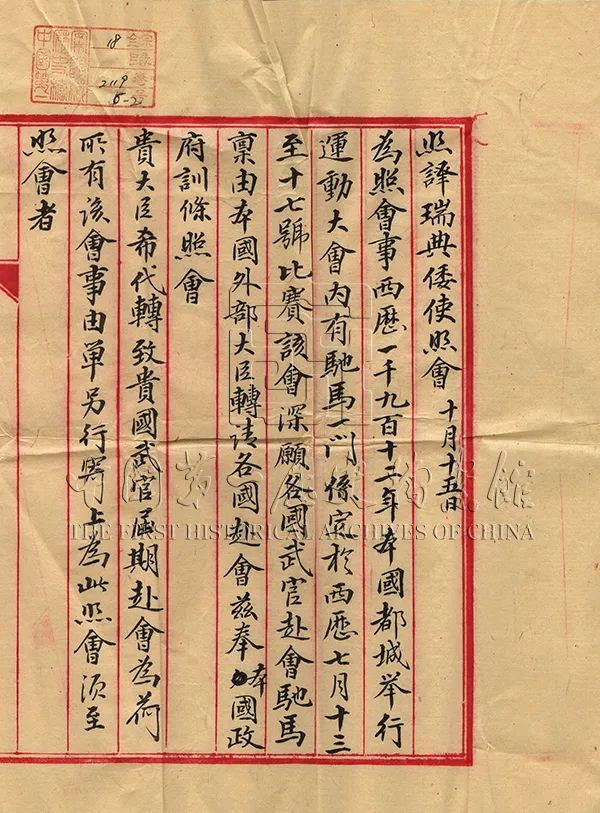 照譯瑞典倭使照會 十月十五日
為照會事西歷一千九百十二年本國都城举行
運動大會內有馳馬一門係定於西歷七月十三
至十七號比賽該會深願各國武官赴會馳馬
稟由本國外部大臣轉請各國赴會茲奉本國政
府訓條照會
貴大臣希代轉致貴國武官届期赴會為荷
所有該會事由单另行寄上為此照會須至
照會者
18
2119
5-2
中國第一歷史檔案館
THE FIRST HISTORICAL ARCHIVES OF CHINA